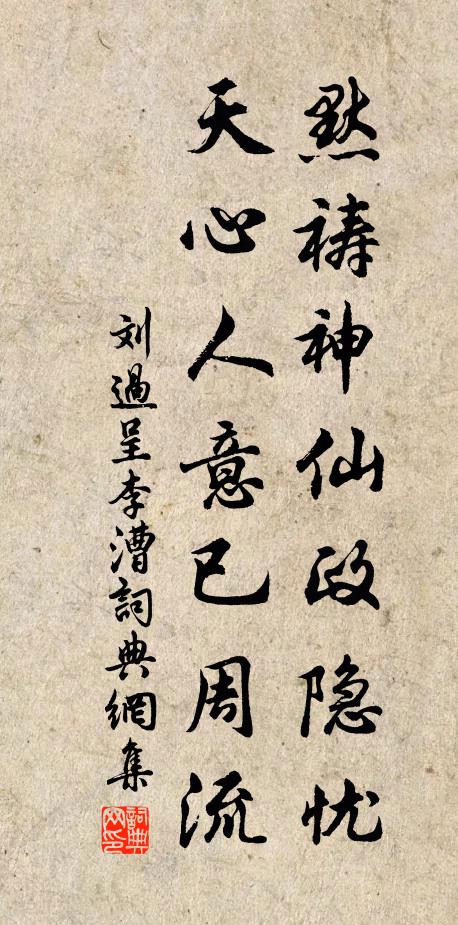 黙祷神仙政隐忧
天心人意已周流
刘過呈李漕詞典網集
詞典网印